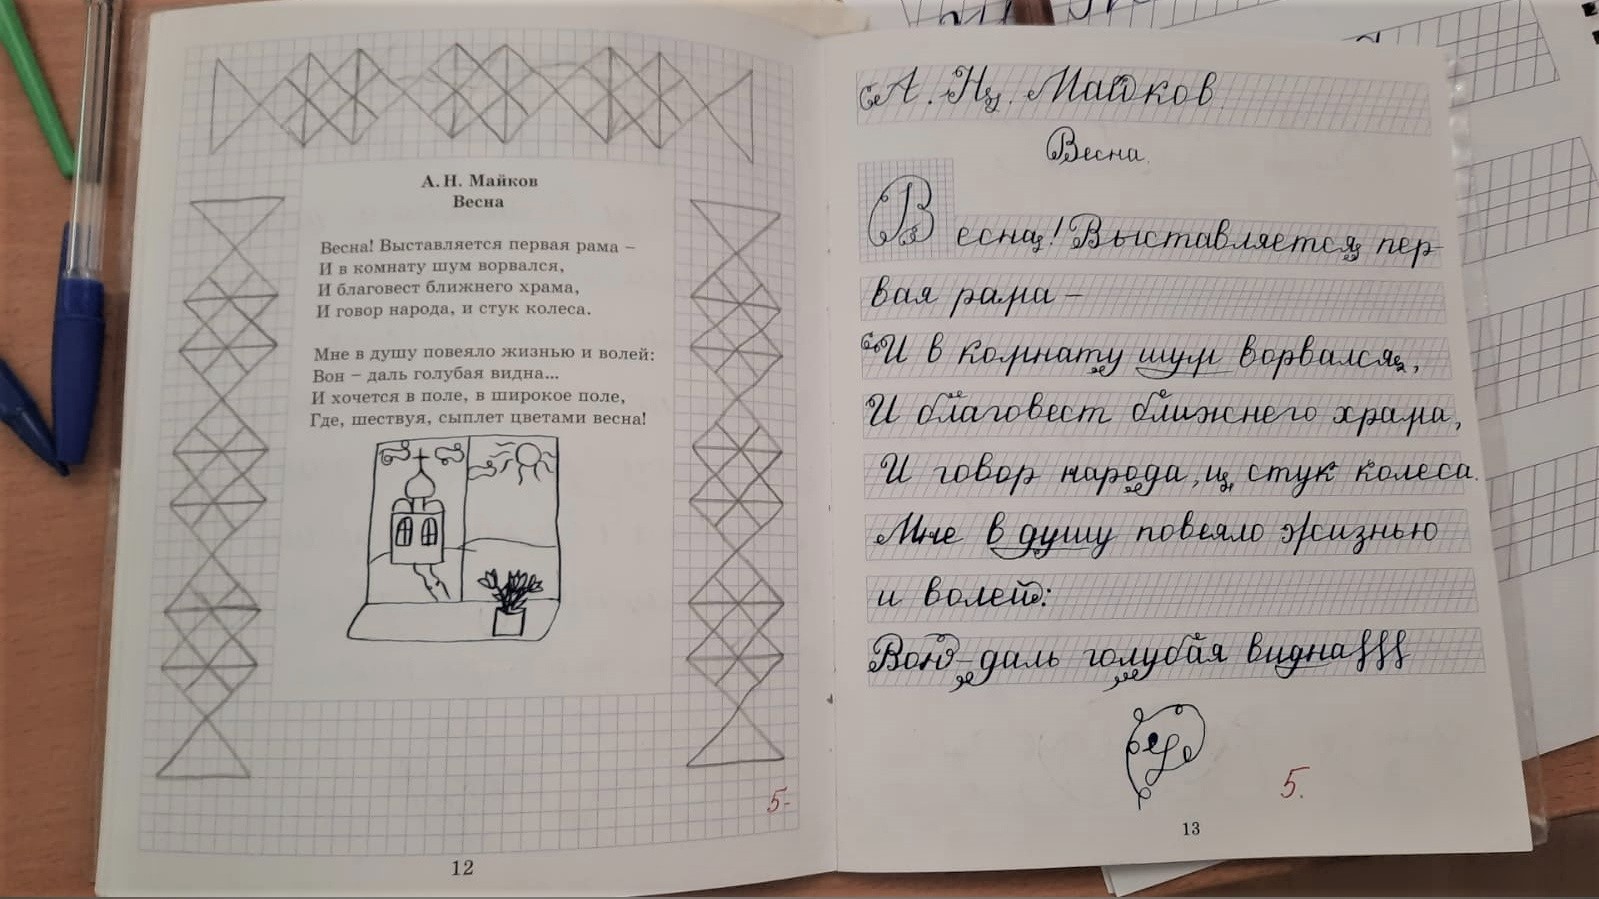 А. Н. Майков
Весна
Весна! Выставляется первая рама –
И в комнату шум ворвался,
И благовест ближнего храма,
И говор народа, и стук колеса.
Мне в душу повеяло жизнью и волей:
Вон – даль голубая видна...
И хочется в поле, в широкое поле,
Где, шествуя, сыплет цветами весна!
5-
12
А. Н. Майков.
Весна.
Весна! Выставляется пер-
вая рама –
И в комнату шум ворвался,
И благовест ближнего храма,
И говор народа, и стук колеса.
Мне в душу повеяло жизнью
и волей:
Вон – даль голубая видна
5.
13